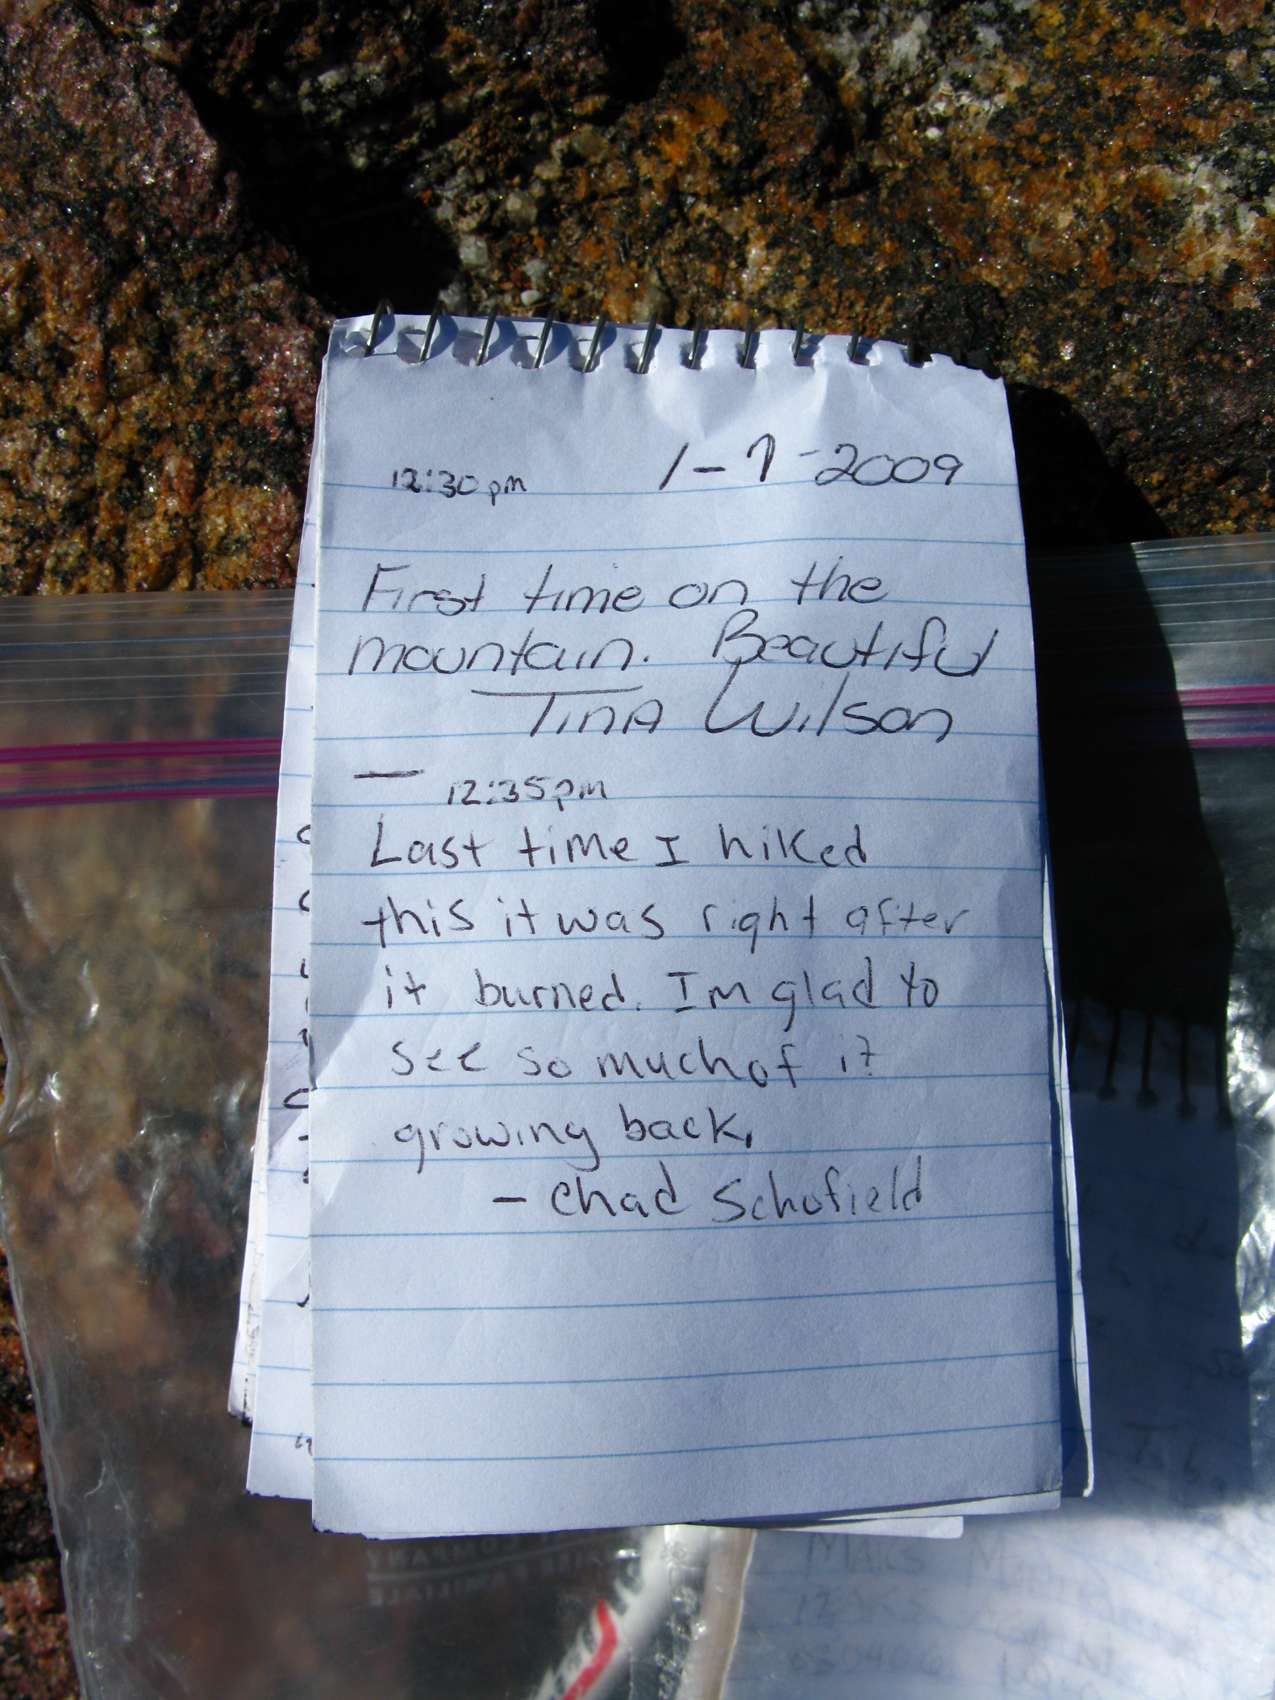 12:30pm 1-7-2009
First time on the
mountain. Beautiful
Tina Wilson
— 12:35pm
Last time I hiked
this it was right after
it burned. Im glad to
see so much of it
growing back.
- Chad Schofield
COMPANY
FAMILIALE